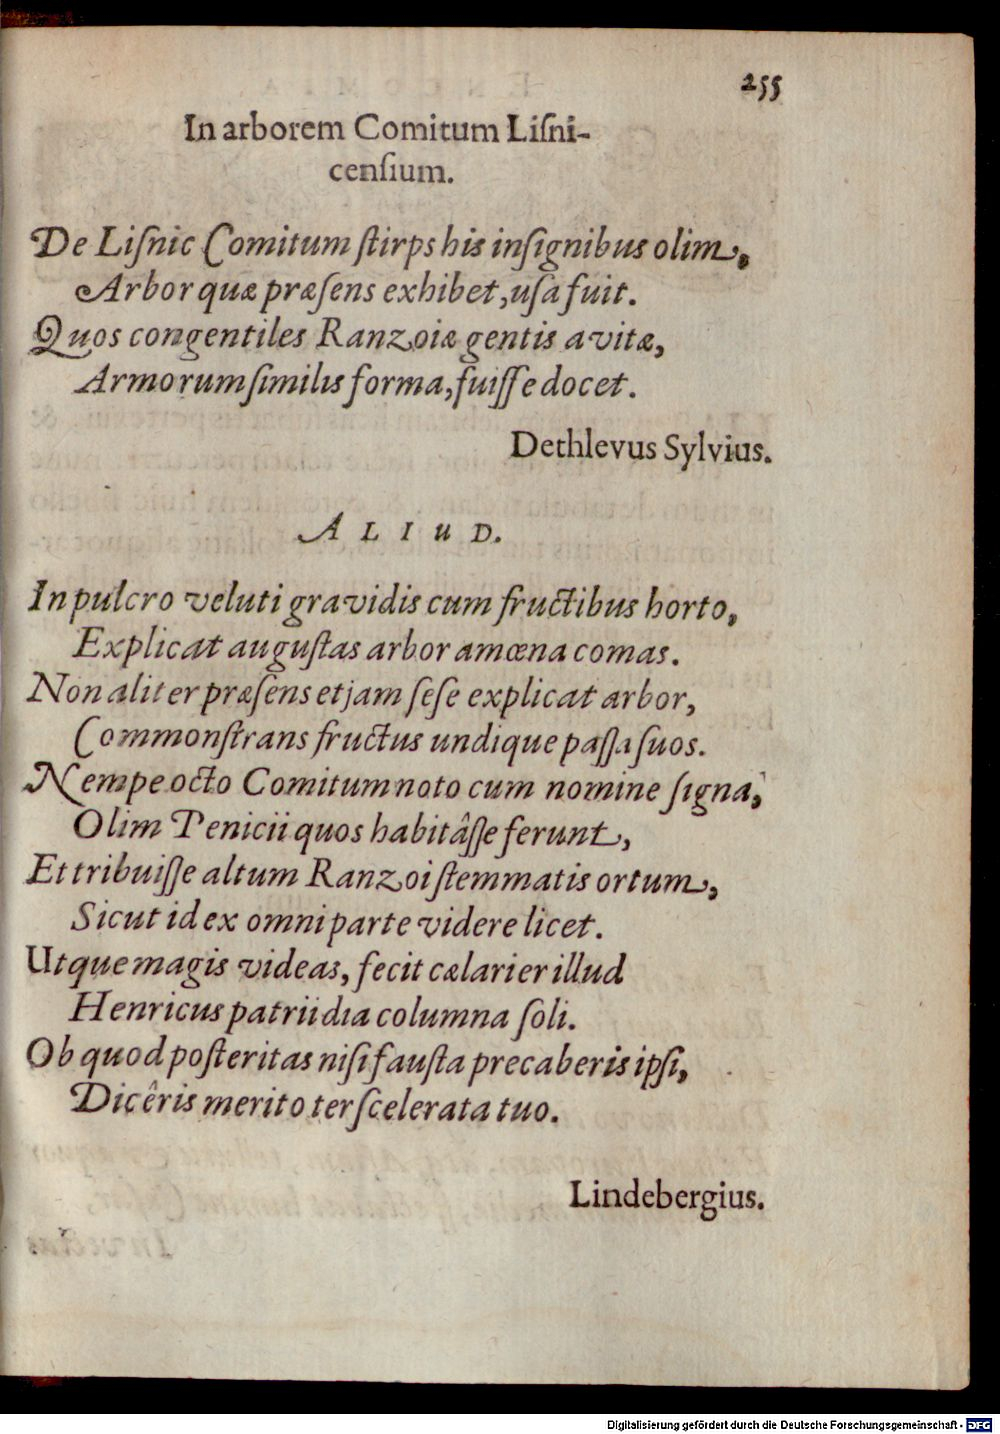 255
In arborem Comitum Liſni-
cenſium.
De Liſnic Comitum ſtirps his inſignibus olim,
Arbor quæ præſens exhibet, uſa fuit.
Quos congentiles Ranzoiæ gentis avitæ,
Armorum ſimilis forma, fuiſſe docet.
Dethlevus Sylvius.
ALIUD.
In pulcro veluti gravidis cum fructibus horto,
Explicat auguſtas arbor amœna comas.
Non aliter præſens etjam ſeſe explicat arbor,
Commonſtrans fructus undique paſſa ſuos.
Nempe octo Comitum noto cum nomine ſigna,
Olim Penicii quos habitâſſe ferunt,
Et tribuiſſe altum Ranzoi ſtemmatis ortum,
Sicut id ex omni parte videre licet.
Utque magis videas, fecit cælarier illud
Henricus patrii dia columna ſoli.
Ob quod poſteritas niſi fauſta precaberis ipſi,
Dicêris merito ter ſcelerata tuo.
Lindebergius.
Digitalisierung gefördert durch die Deutsche Forschungsgemeinschaft - DFG